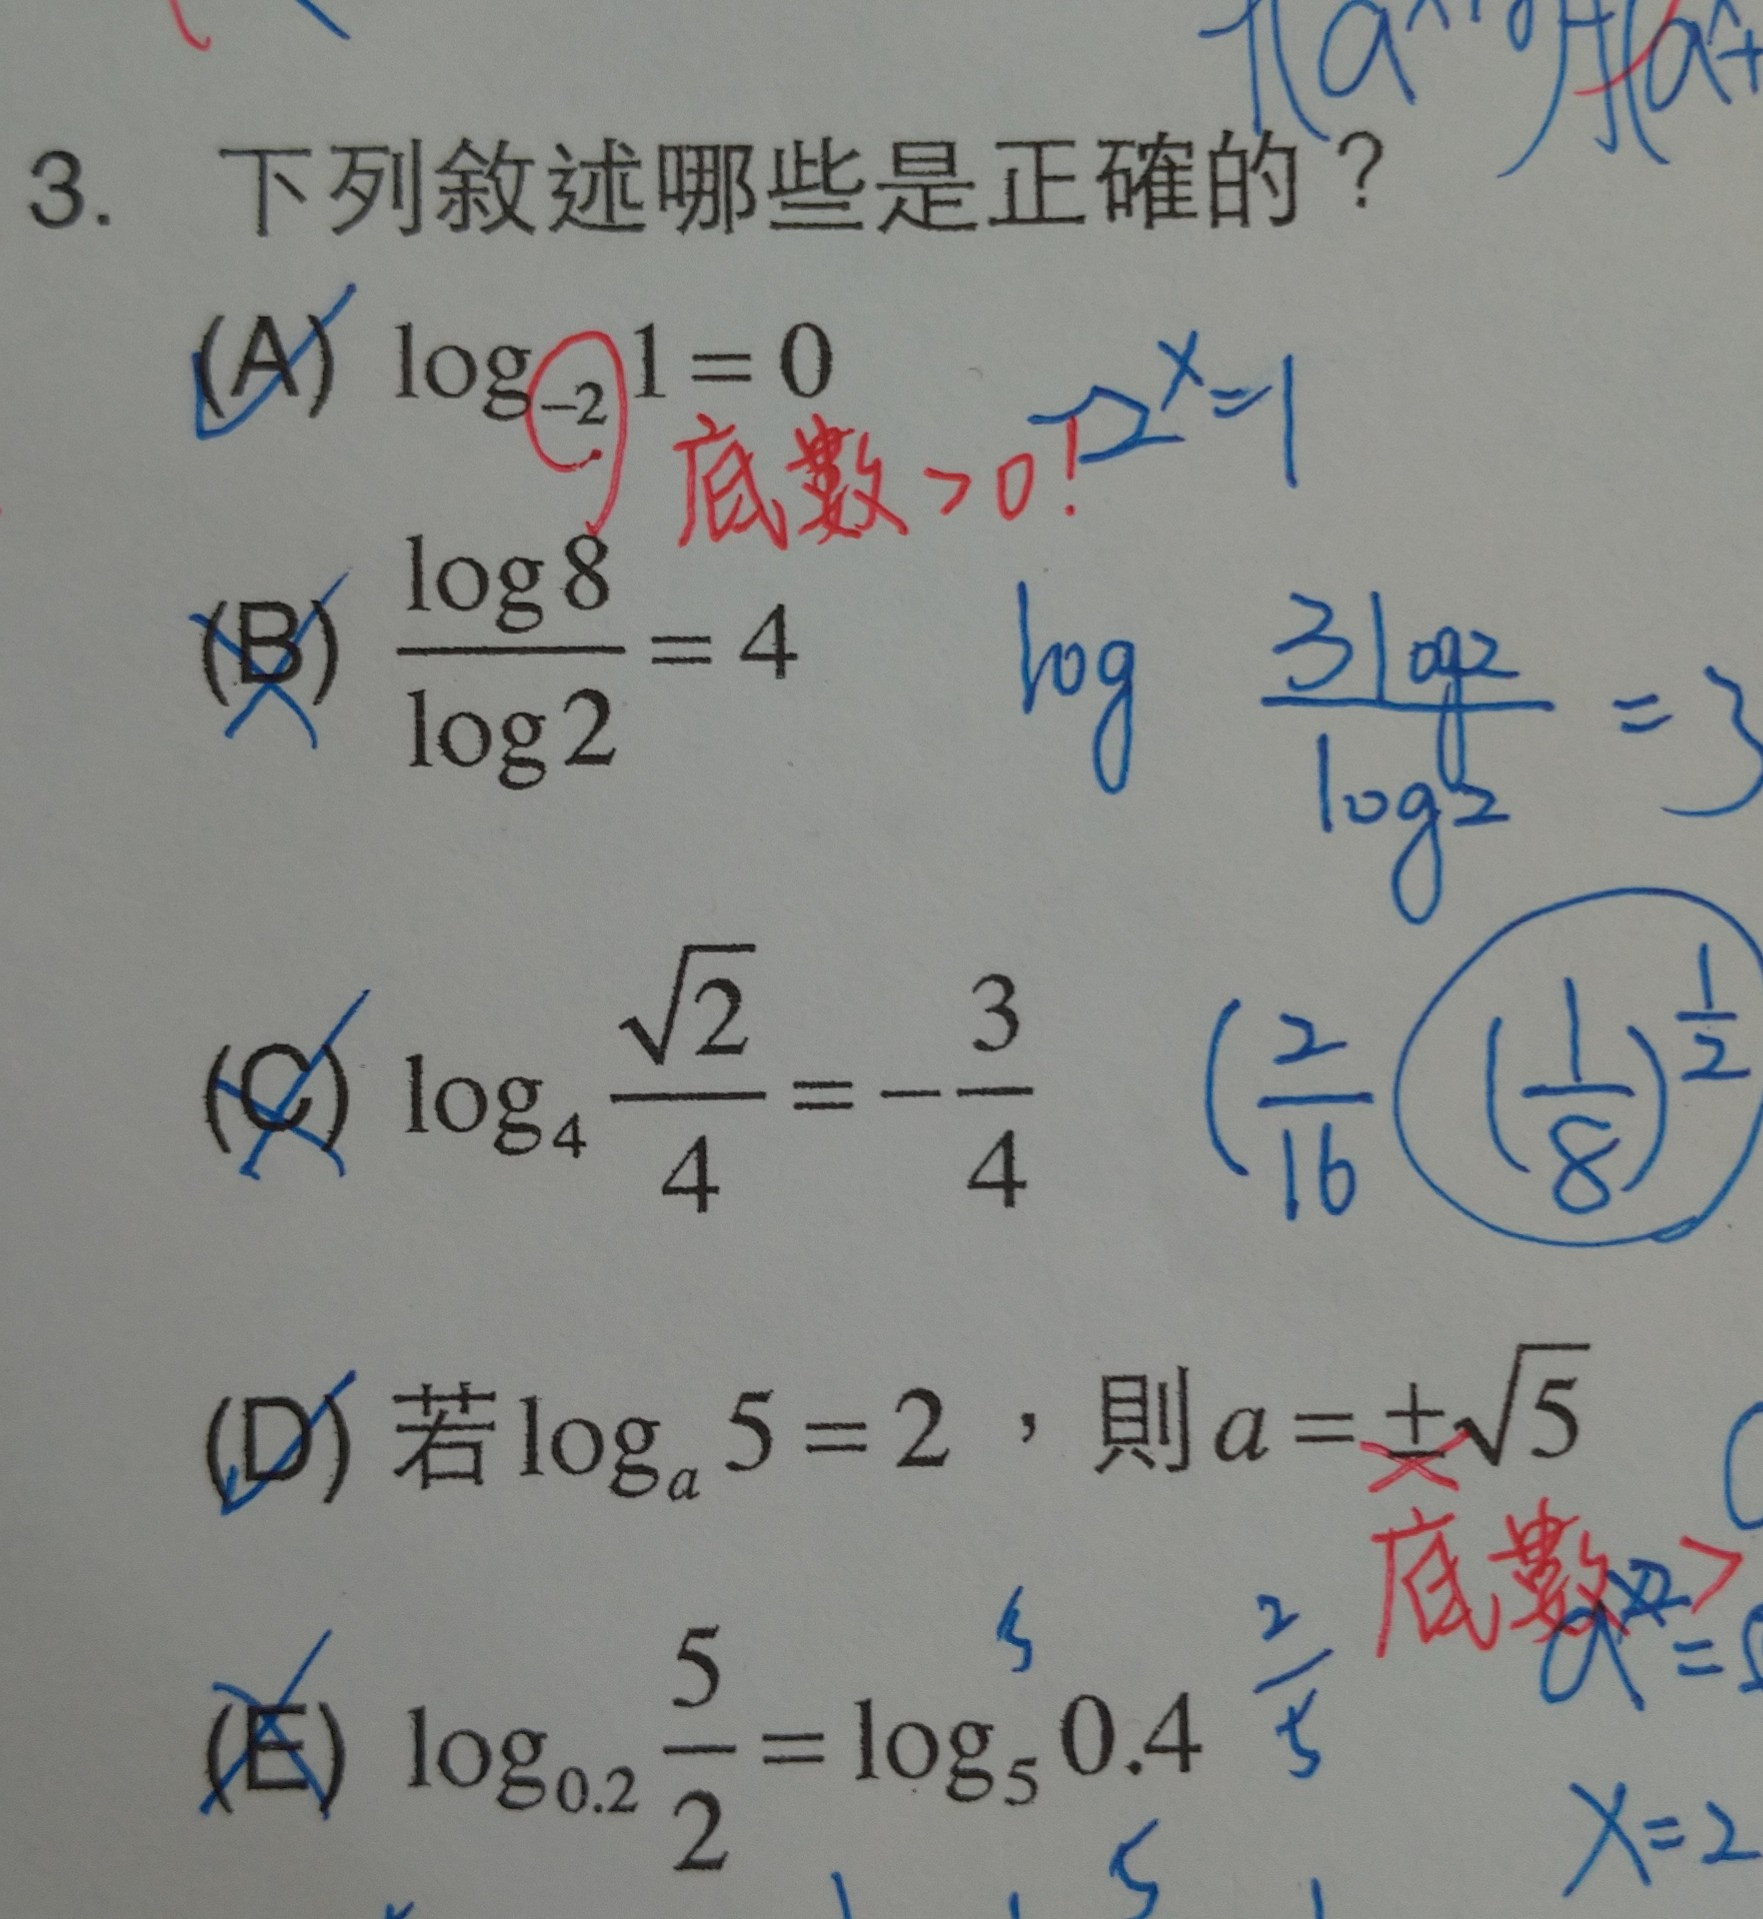 3. 下列敘述哪些是正確的？
(A) log₋₂ 1 = 0
-2ˣ = 1
底數 > 0!
(B) log 8 / log 2 = 4
log 3log2 / log2 = 3
(C) log₄ √2/4 = -3/4
(2/16 (1/8)^(1/2)
(D) 若 logₐ 5 = 2，則 a = ±√5
底數 >
(E) log₀.₂ 5/2 = log₅ 0.4
2/5
x = 2